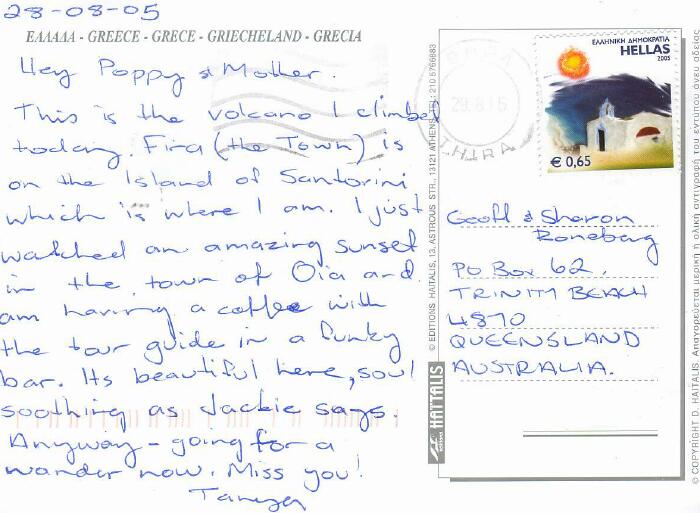 28-08-05
ΕΛΛΑΔΑ - GREECE - GRECE - GRIECHELAND - GRECIA
Hey Poppy & Mother.
This is the volcano I climbed
today. Fira (the Town) is
on the Island of Santorini
which is where I am. I just
watched an amazing sunset
in the town of Oia and
am having a coffee with
the tour guide in a funky
bar. Its beautiful here, soul
soothing as Jackie says.
Anyway - going for a
wander now. Miss you!
© EDITIONS HAITALIS, 13, ASTROUS STR., 13121 ATHENS, TEL: 210 5766883
HAITALIS
THIRA
ΕΛΛΗΝΙΚΗ ΔΗΜΟΚΡΑΤΙΑ
HELLAS
2005
€ 0,65
Geoff & Sharon
PO Box 62.
TRINITY BEACH
4870
QUEENSLAND
AUSTRALIA.
© COPYRIGHT Η. HAITALIS Απαγορεύεται μερική ή ολική αντιγραφή του εντύπου άνευ αδείας